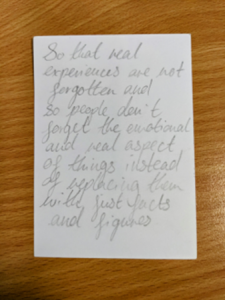 So that real
experiences are not
forgotten and
so people don't
forget the emotional
and real aspect
of things instead
of replacing them
with just facts
and figures